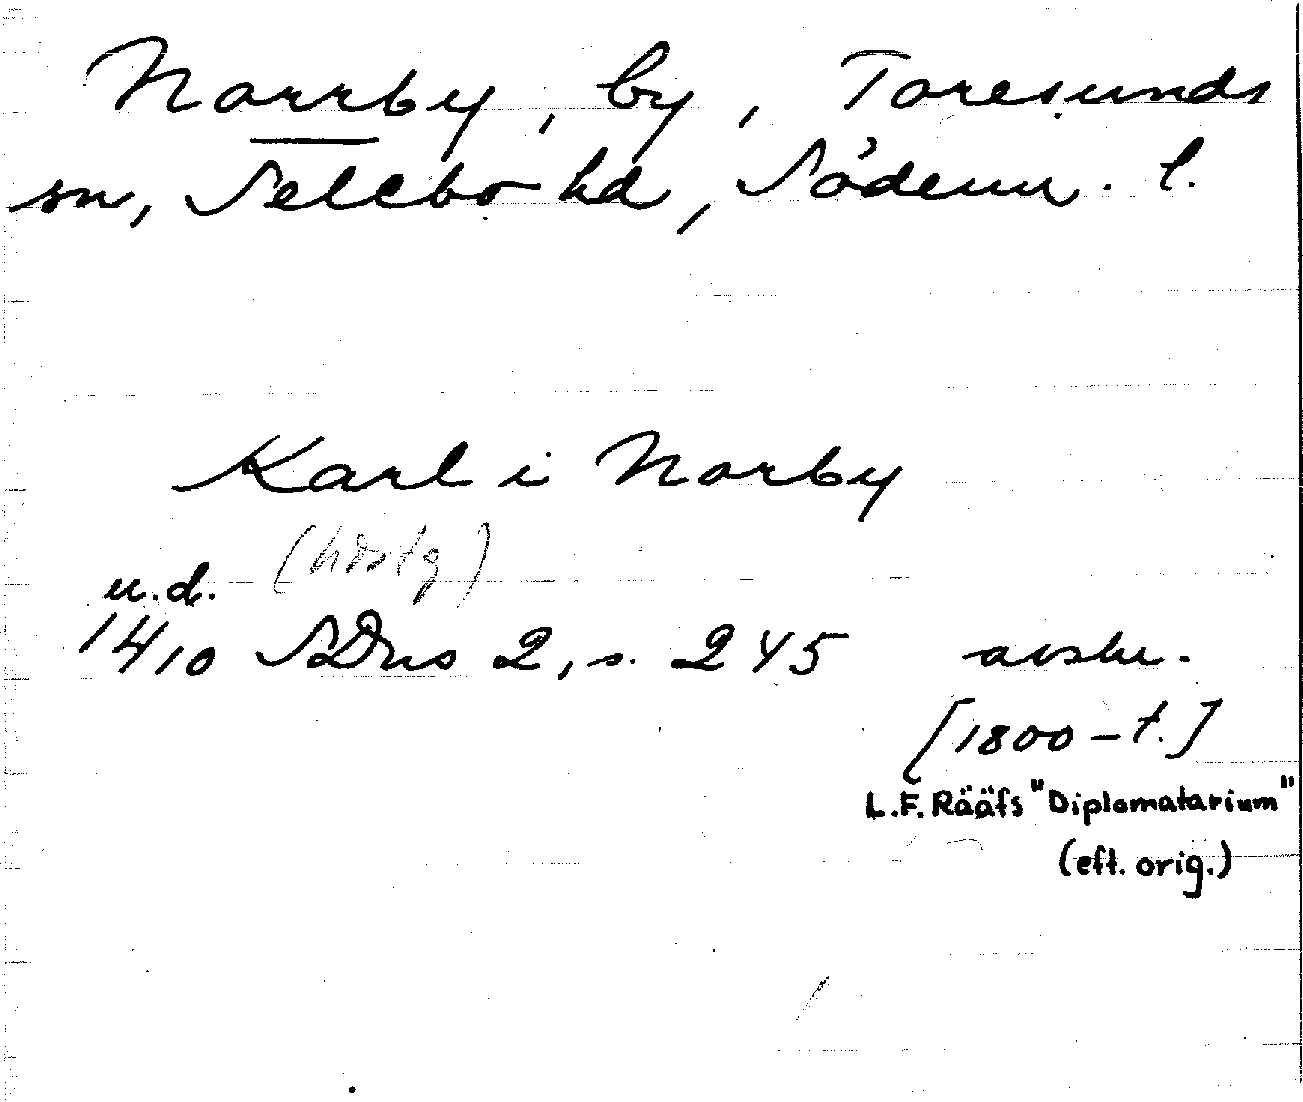 Norrby, by, Toresunds
sn, Selebo hd, Söderm. l.
Karl i Norby
(hdstg)
u.d.
1410 SDns 2, s. 245 avskr.
[1800-t.]
L.F. Rääfs "Diplomatarium"
(eft. orig.)